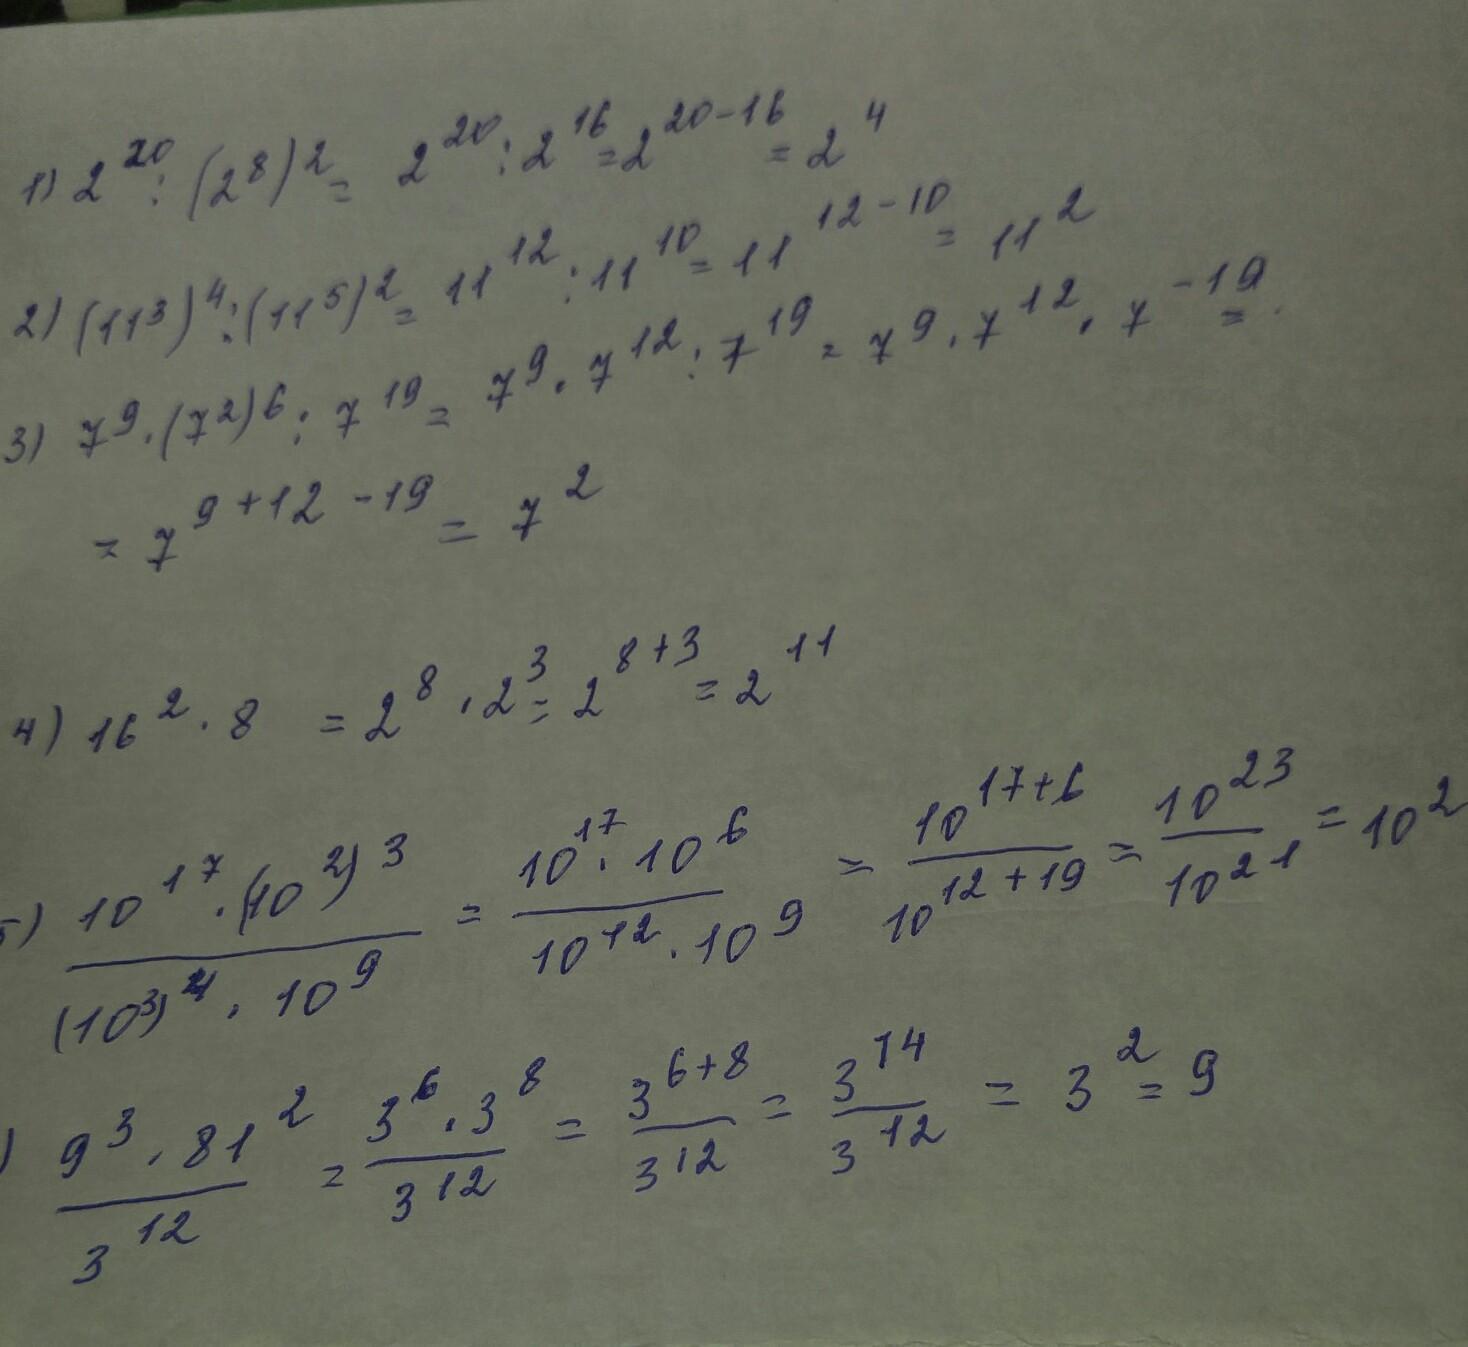 1) 2^20 : (2^8)^2 = 2^20 : 2^16 = 2^20-16 = 2^4
2) (11^3)^4 : (11^5)^2 = 11^12 : 11^10 = 11^12-10 = 11^2
3) 7^9 · (7^2)^6 : 7^19 = 7^9 · 7^12 : 7^19 = 7^9 · 7^12 · 7^-19 =
= 7^9+12-19 = 7^2
4) 16^2 · 8 = 2^8 · 2^3 = 2^8+3 = 2^11
5) 10^17 · (10^2)^3 / (10^3)^4 · 10^9 = 10^17 · 10^6 / 10^12 · 10^9 = 10^17+6 / 10^12+19 = 10^23 / 10^21 = 10^2
) 9^3 · 81^2 / 3^12 = 3^6 · 3^8 / 3^12 = 3^6+8 / 3^12 = 3^14 / 3^12 = 3^2 = 9